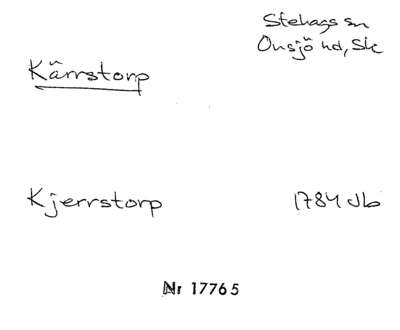 Stehags sn
Onsjö hd, Sk
Kärrstorp
Kjerrstorp 1784 Jb
Nr 17765